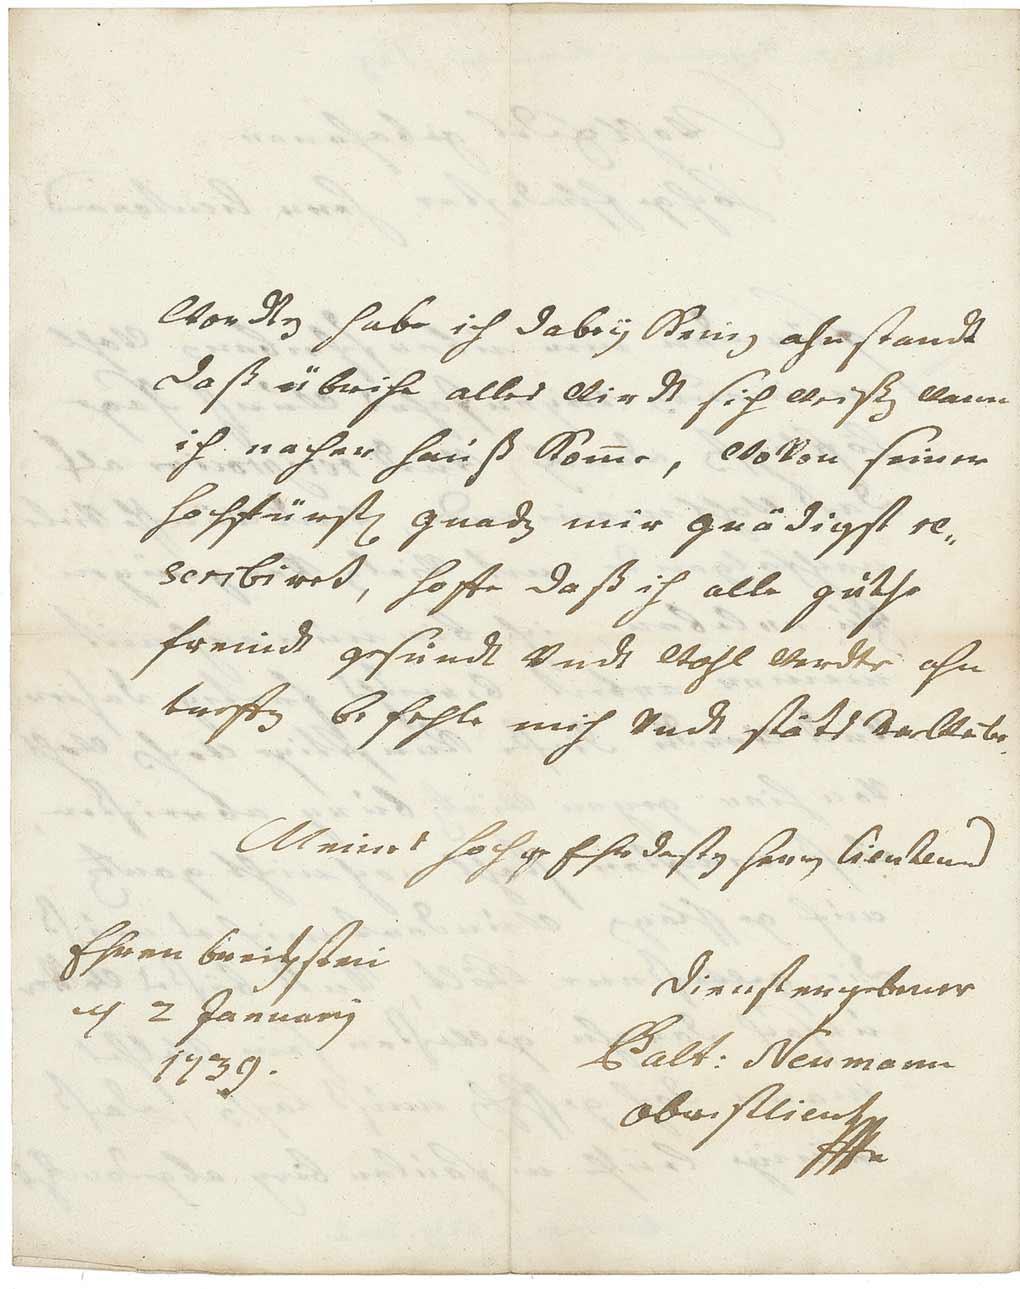 werdten habe ich dabeÿ Keinen ahnstandt
daß übrihe alles wirdt sich weißen wann
ich nacher hauß Komme, wovon seiner
hochfürstl gnaden mir gnädigst re„
scribiret, hoffe daß ich alle guthe
freindt gesundt Undt wohl werdte ahn
treffen befehle mich Undt stäts Verbleibe
Meines hochge Ehrdesten herrn Lieutenand
Ehrenbreitstein
2 Januarÿ
1739.
dienstergebener
Balt: Neumann
obristlieut